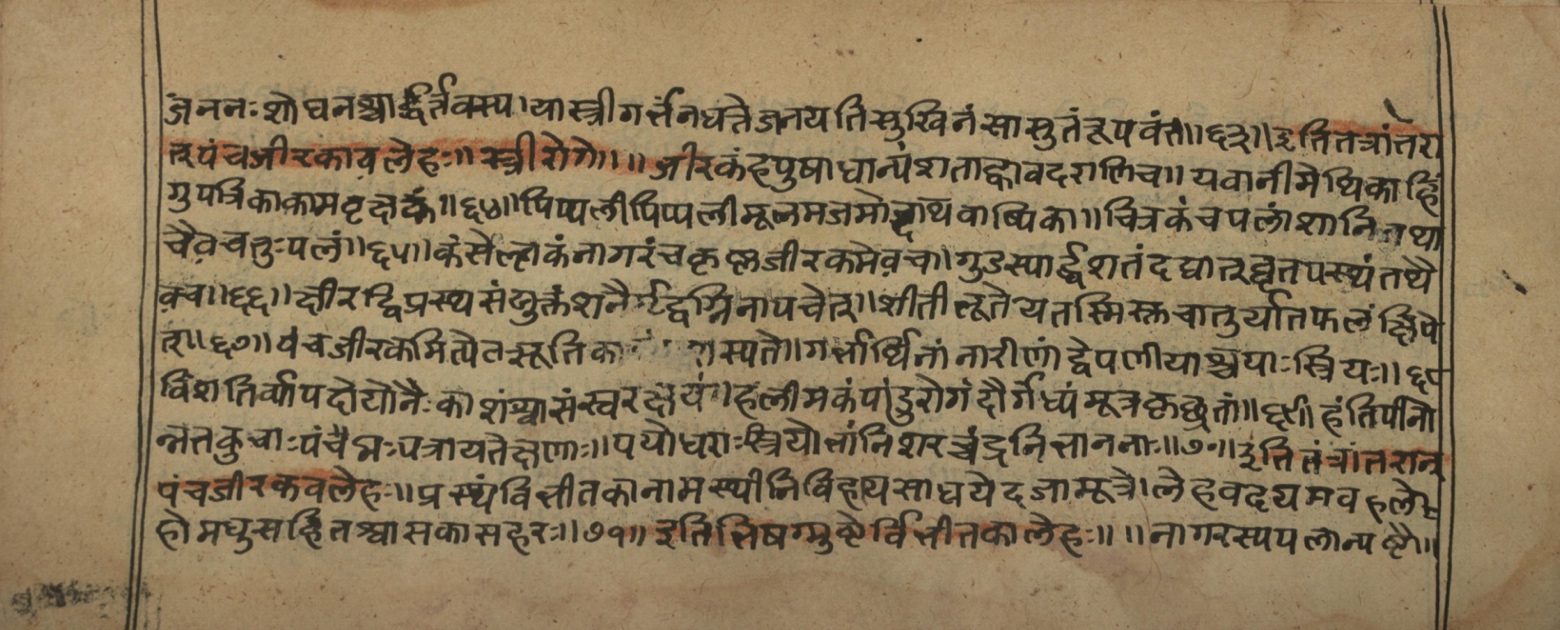 जननः शोधनश्चार्द्धिर्तवस्य। या स्त्री गर्त्तं न धत्ते जनयति सुखिनं सा सुतं रूपवंतं॥६३॥ इति तत्रांतेरा
त् पंचजीरकावलेहः॥ स्त्री रोगे॥ ॥ जीरकं हपुषा धान्यं शताह्वा वदराणि च॥ यवानी मेथिका हिं
गुपत्रिका कामवृदाकं॥६४॥ पिप्पली पिप्पलीमूलमजमोदाथ वाष्पिका॥ चित्रकं च पलांशानि तथा
चैव चतुःपलं॥६५॥ कंसेल्हकं नागरं च कृष्णजीरकमेव च। गुडस्यार्द्धशतं दद्यात् घृतपस्थं तथै
व च॥६६॥ क्षीरद्विप्रस्थसंयुक्तं शनैर्मृद्वग्निना पचेत्॥ शीतीलूते च तस्मिस्क्त चातुर्यातफलं क्षिपे
त्॥६७॥ पंचजीरकमित्येत सूतिका स्पते॥ गर्त्तार्थिनां नारीणां द्वेपलीयाश्चपाः स्त्रियः॥६८
विंशतिर्व्यापदो योनैः काशं श्वासं स्वरक्षयं॥ हलीमकं पांडुरोगं दौर्गध्यं मूत्रकृछ्रतां॥६९॥ हंति पीनो
न्नतकुचाः पंचैमःपत्रायतेक्षणाः॥ पयोधराः स्त्रियो त्तांनि शरच्चंद्रनित्ताननाः॥७०॥ इति तंत्रांतरात्
पंचजीरकवलेहः॥ प्रस्थं वित्तीतकानामस्थीनि विहाय साधयेदजामूत्रे। लेहवदयमवहले
हो मधुसहित श्वासकासहरः॥७१॥ इति त्तिषग्मुष्टे र्वित्तीतकालेहः॥ ॥ नागरस्य पलान्यष्टौ॥